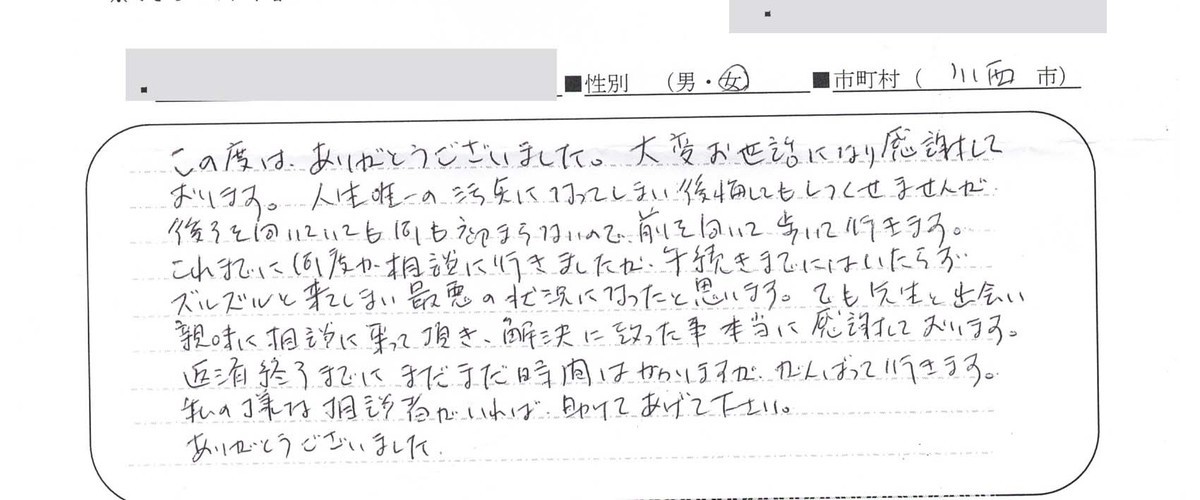 ■性別 （男・女） ■市町村（ 川西 市）
この度は、ありがとうございました。大変お世話になり感謝して
おります。人生唯一の汚点になってしまい後悔してもしつくせませんが
後ろを向いていても何も始まらないので、前を向いて歩いて行きます。
これまでに何度か相談に行きましたが、手続きまでにはいたらず
ズルズルと来てしまい最悪の状況になったと思います。でも先生と出会い
親味に相談に乗って頂き、解決に致った事本当に感謝しております。
返済終了までにまだまだ時間はかかりますが、がんばって行きます。
私の様な相談者がいれば、助けてあげて下さい。
ありがとうございました。